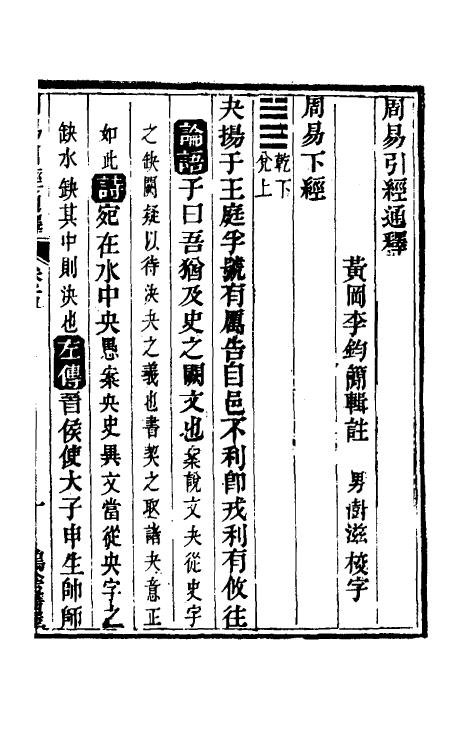 周易引經通釋
黃岡李鈞簡輯註 男澍滋校字
周易下經
乾下
兌上
夬揚于王庭孚號有厲告自邑不利即戎利有攸往
論語子曰吾猶及史之闕文也案說文夬從史字
之缺闕疑以待決夬之義也書契之取諸夬意正
如此詩宛在水中央愚案央史異文當從央字之
缺水缺其中則決也左傳晉侯使大子申生帥師